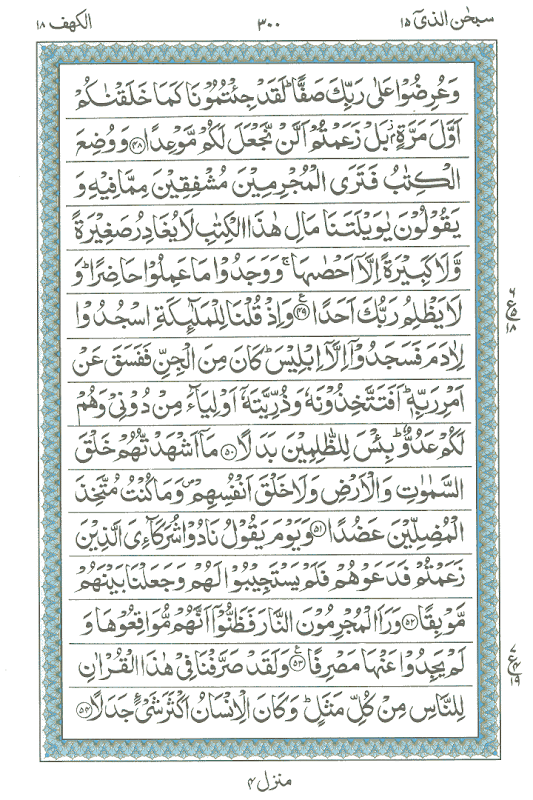 سبحٰن الذیٓ ۱۵ ۳۰۰ الكهف ۱۸
وَعُرِضُوْا عَلٰى رَبِّكَ صَفًّا ؕ لَقَدْ جِئْتُمُوْنَا كَمَا خَلَقْنٰكُمْ
اَوَّلَ مَرَّةٍۭ ؗ بَلْ زَعَمْتُمْ اَلَّنْ نَّجْعَلَ لَكُمْ مَّوْعِدًا ﴿۴۸﴾ وَوُضِعَ
الْكِتٰبُ فَتَرَى الْمُجْرِمِيْنَ مُشْفِقِيْنَ مِمَّا فِيْهِ وَ
يَقُوْلُوْنَ يٰوَيْلَتَنَا مَالِ هٰذَا الْكِتٰبِ لَا يُغَادِرُ صَغِيْرَةً
وَّلَا كَبِيْرَةً اِلَّاۤ اَحْصٰىهَا ۚ وَوَجَدُوْا مَا عَمِلُوْا حَاضِرًا ؕ وَ
لَا يَظْلِمُ رَبُّكَ اَحَدًا ﴿۴۹﴾ وَاِذْ قُلْنَا لِلْمَلٰٓئِكَةِ اسْجُدُوْا
لِاٰدَمَ فَسَجَدُوْۤا اِلَّاۤ اِبْلِيْسَ ؕ كَانَ مِنَ الْجِنِّ فَفَسَقَ عَنْ
اَمْرِ رَبِّهٖ ؕ اَفَتَتَّخِذُوْنَهٗ وَذُرِّيَّتَهٗۤ اَوْلِيَآءَ مِنْ دُوْنِیْ وَهُمْ
لَكُمْ عَدُوٌّ ؕ بِئْسَ لِلظّٰلِمِيْنَ بَدَلًا ﴿۵۰﴾ مَاۤ اَشْهَدْتُّهُمْ خَلْقَ
السَّمٰوٰتِ وَالْاَرْضِ وَلَا خَلْقَ اَنْفُسِهِمْ ۪ وَمَا كُنْتُ مُتَّخِذَ
الْمُضِلِّيْنَ عَضُدًا ﴿۵۱﴾ وَيَوْمَ يَقُوْلُ نَادُوْا شُرَكَآءِیَ الَّذِيْنَ
زَعَمْتُمْ فَدَعَوْهُمْ فَلَمْ يَسْتَجِيْبُوْا لَهُمْ وَجَعَلْنَا بَيْنَهُمْ
مَّوْبِقًا ﴿۵۲﴾ وَرَاَ الْمُجْرِمُوْنَ النَّارَ فَظَنُّوْۤا اَنَّهُمْ مُّوَاقِعُوْهَا وَ
لَمْ يَجِدُوْا عَنْهَا مَصْرِفًا ﴿۵۳﴾ وَلَقَدْ صَرَّفْنَا فِیْ هٰذَا الْقُرْاٰنِ
لِلنَّاسِ مِنْ كُلِّ مَثَلٍ ؕ وَكَانَ الْاِنْسَانُ اَكْثَرَ شَیْءٍ جَدَلًا ﴿۵۴﴾
۶
ع ۵
۱۸
۷
ع ۴
۱۹
منزل ۴